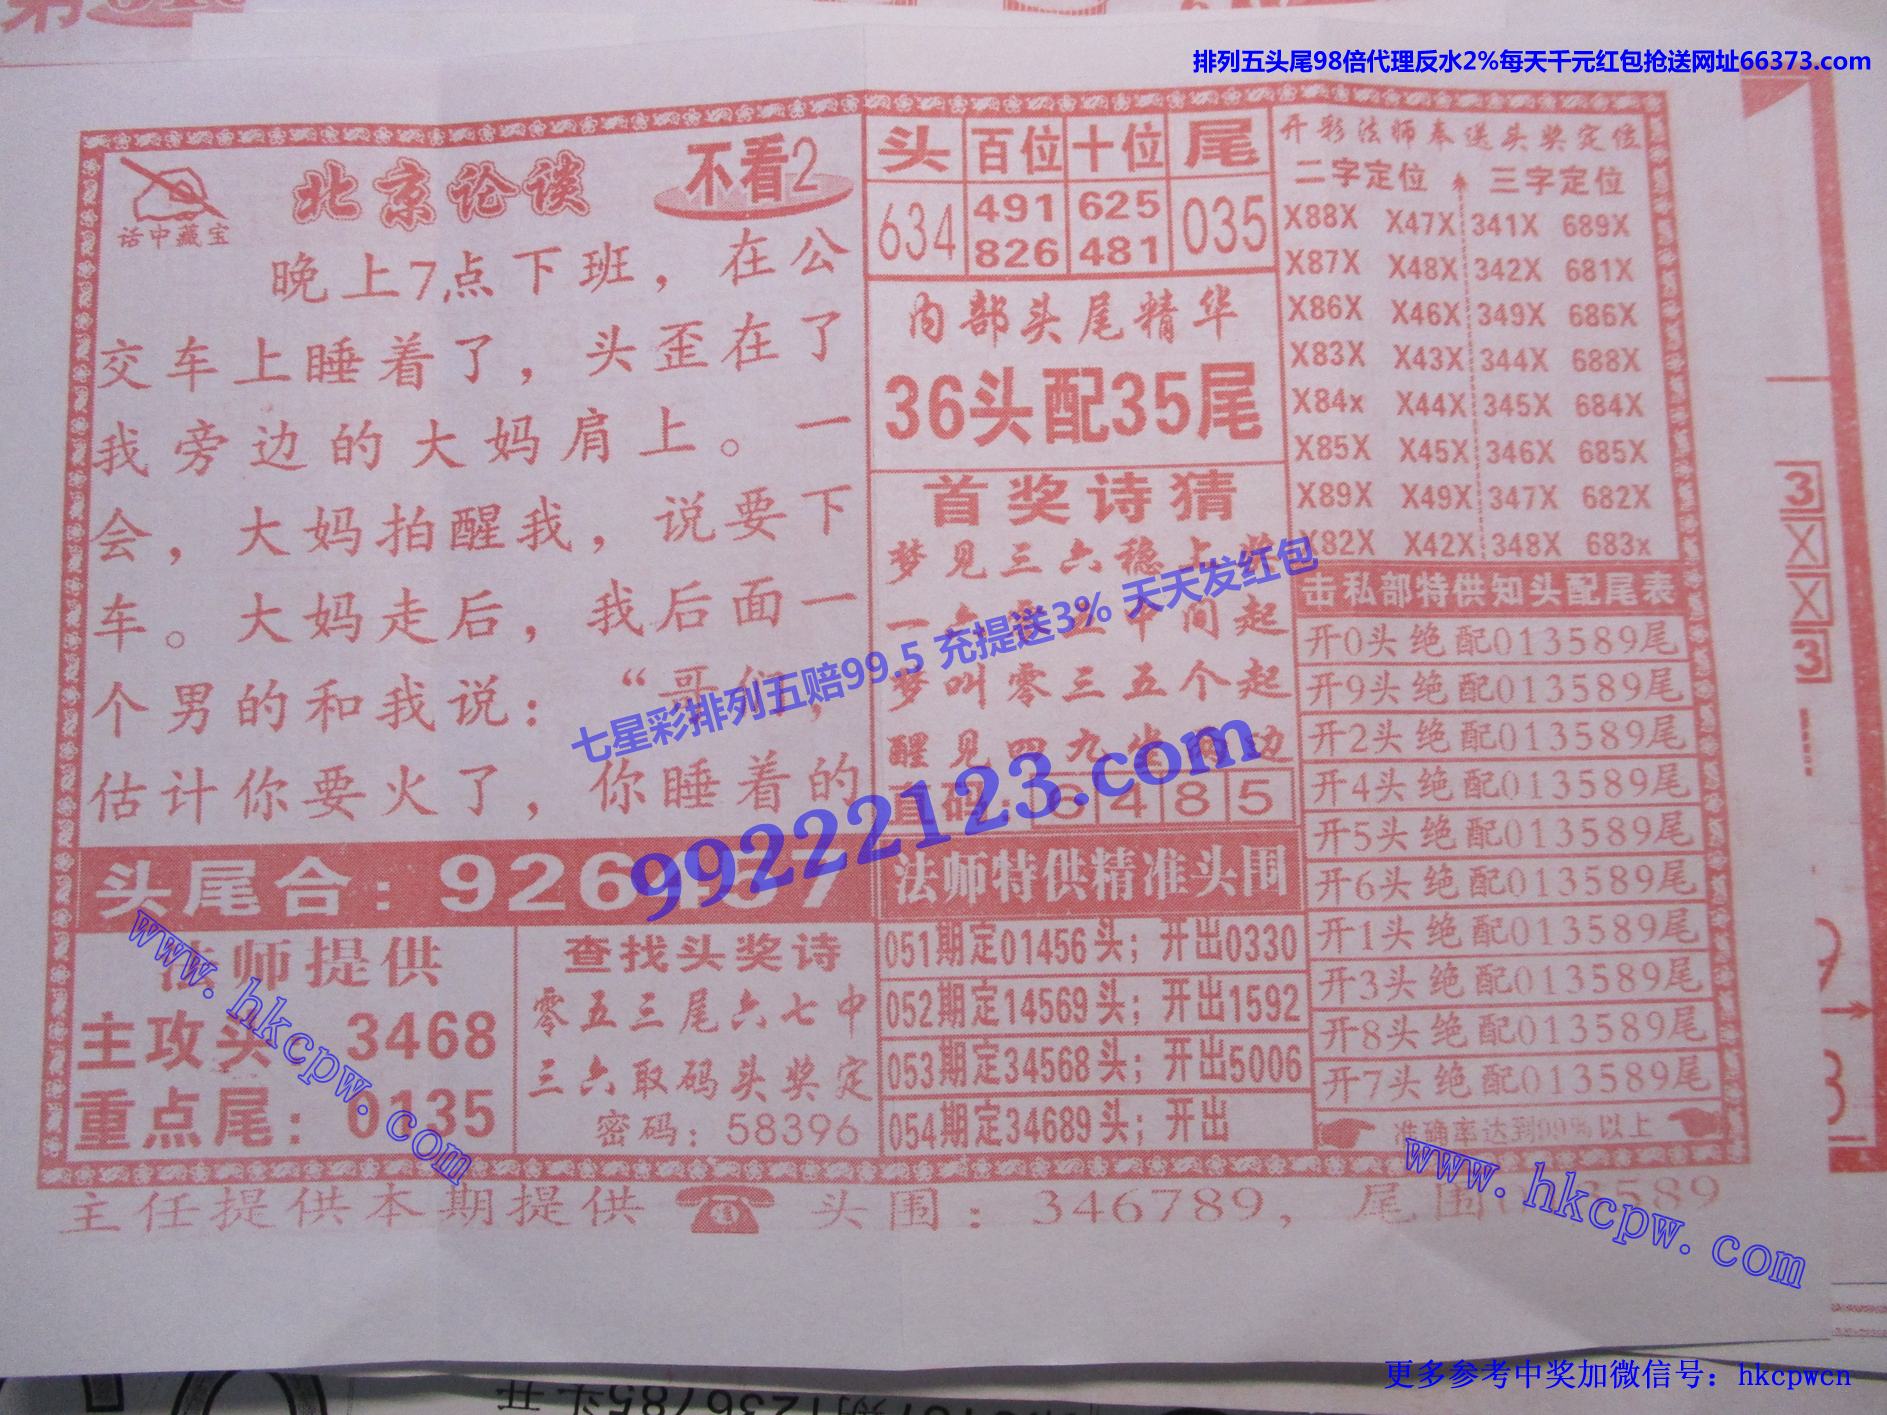 排列五头尾98倍代理反水2%每天千元红包抢送网址66373.com
话中藏宝
北京论谈
不看2
晚上7点下班，在公
交车上睡着了，头歪在了
我旁边的大妈肩上。一
会，大妈拍醒我，说要下
车。大妈走后，我后面一
个男的和我说：“哥们，
估计你要火了，你睡着的
头尾合：926
法师提供
主攻头 3468
重点尾：0135
查找头奖诗
零五三尾六七中
三六取码头奖定
密码：58396
头 百位 十位 尾
634 491 625 035
826 481
内部头尾精华
36头配35尾
首奖诗猜
梦见三六稳上
一 间起
梦叫零三五个起
醒见四九 边
直码：6 4 8 5
法师特供精准头围
051期定01456头；开出0330
052期定14569头；开出1592
053期定34568头；开出5006
054期定34689头；开出
开彩法师奉送头奖定位
二字定位 三字定位
X88X X47X 341X 689X
X87X X48X 342X 681X
X86X X46X 349X 686X
X83X X43X 344X 688X
X84x X44X 345X 684X
X85X X45X 346X 685X
X89X X49X 347X 682X
X82X X42X 348X 683x
击私部特供知头配尾表
开0头绝配013589尾
开9头绝配013589尾
开2头绝配013589尾
开4头绝配013589尾
开5头绝配013589尾
开6头绝配013589尾
开1头绝配013589尾
开3头绝配013589尾
开8头绝配013589尾
开7头绝配013589尾
准确率达到99%以上
主任提供本期提供 头围：346789，尾围 589
七星彩排列五赔99.5 充提送3% 天天发红包
99222123.com
www.hkcpw.com
www.hkcpw.com
3
X
X
3
更多参考中奖加微信号：hkcpwcn